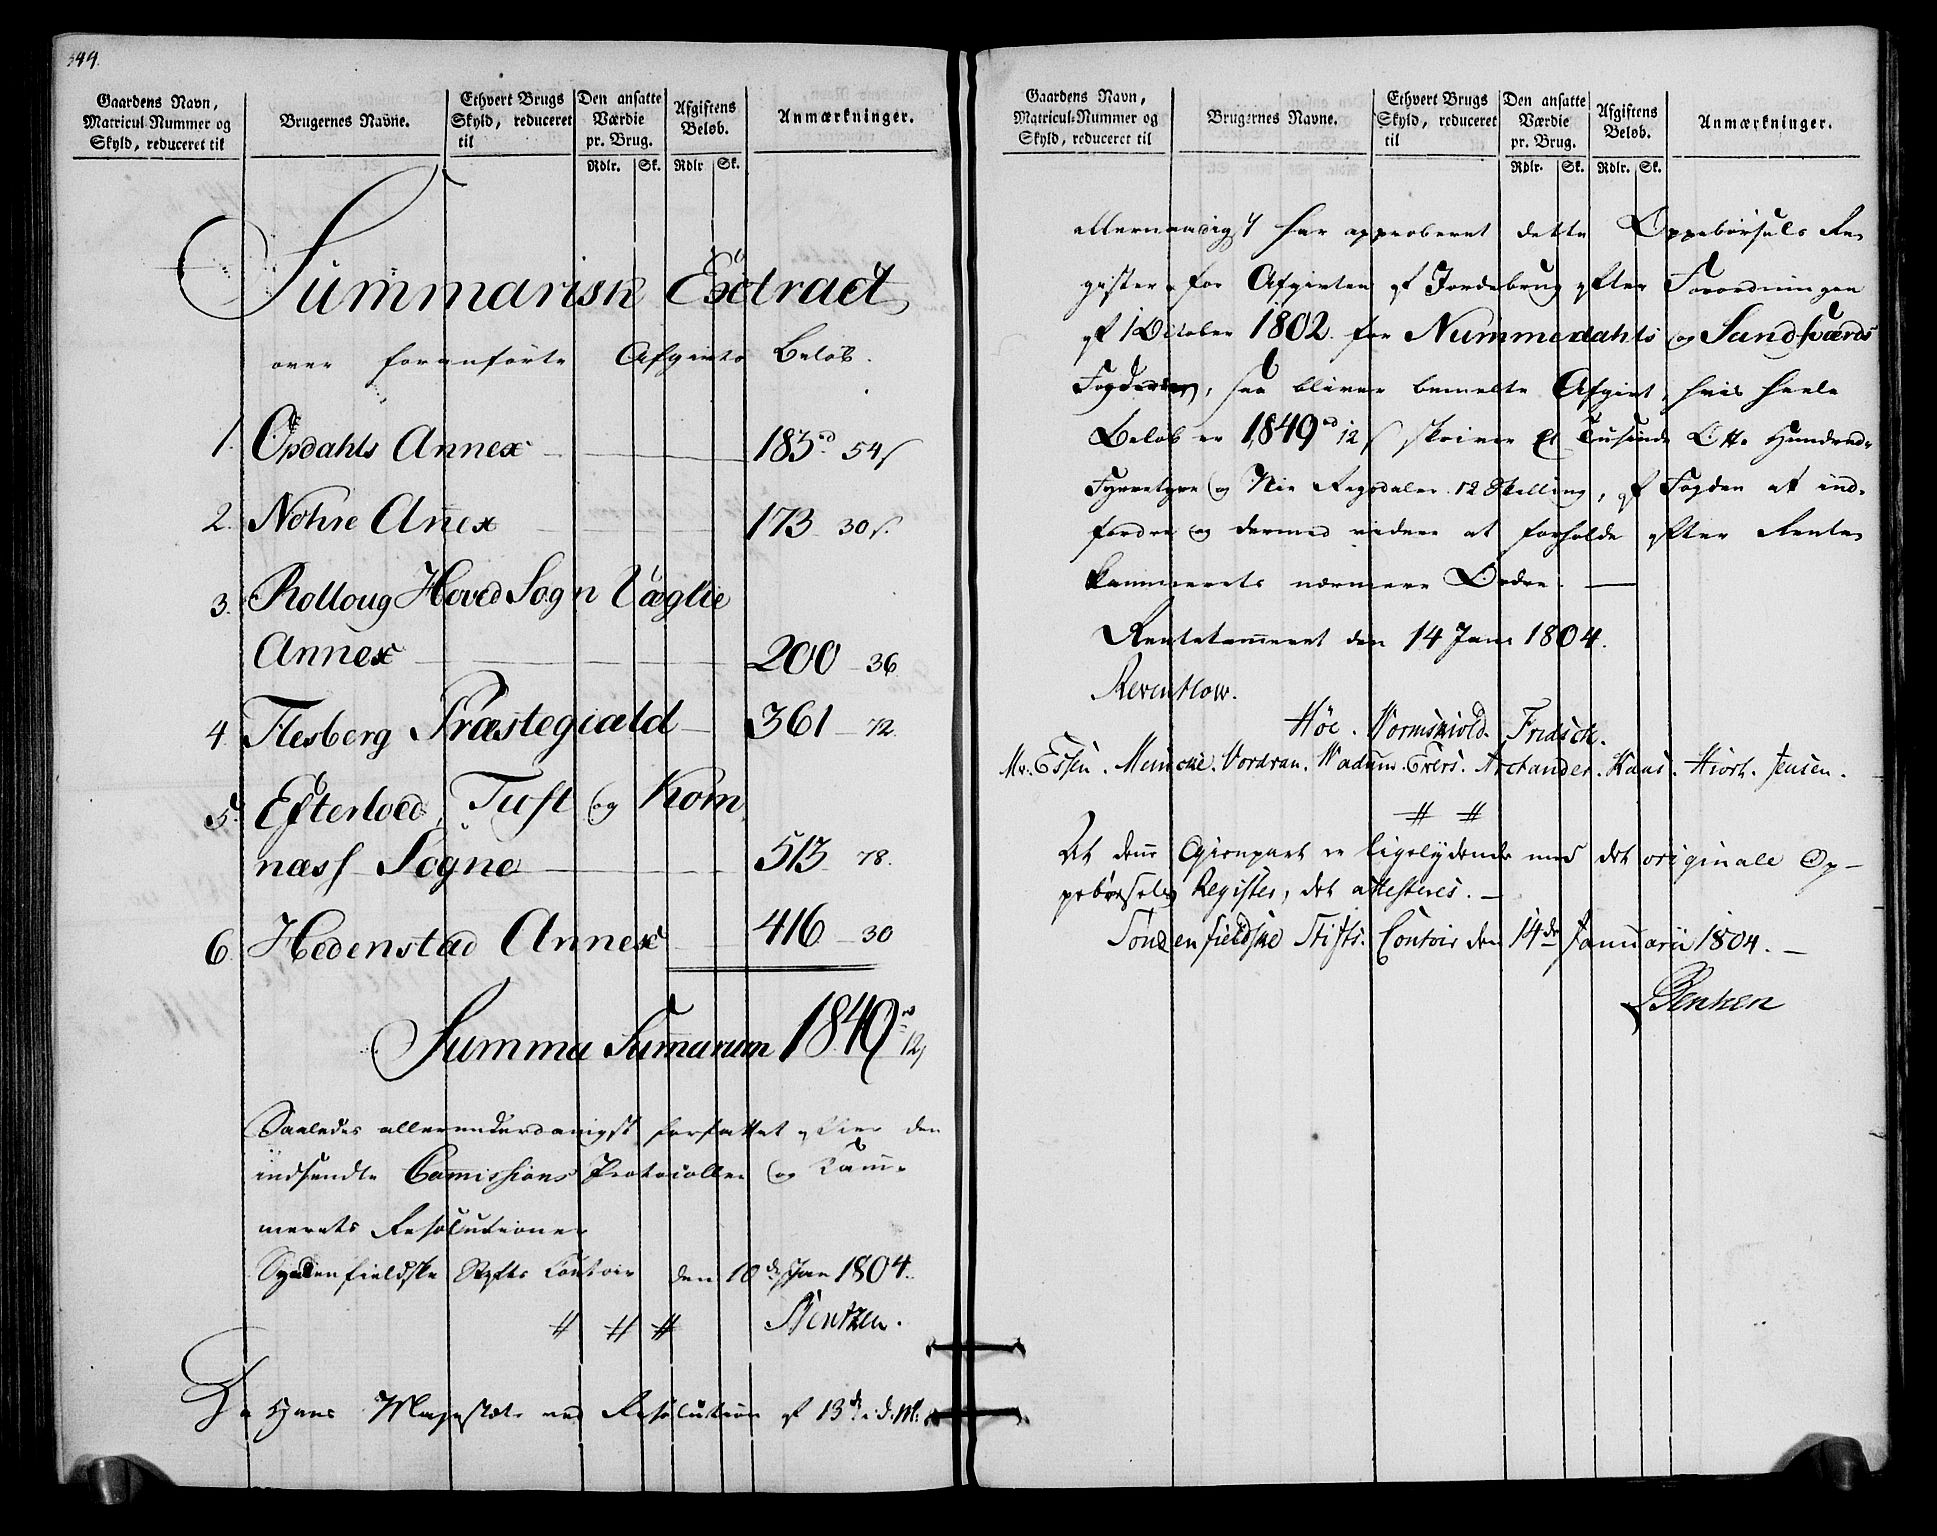 Gaardens Navn, Matricul-Nummer og Skyld, reduceret til
Brugernes Navne.
Ethvert Brugs Skyld, reduceret til
Den ansatte Værdie pr. Brug.
Rdlr. Sk.
Afgiftens Beløb.
Rdlr Sk.
Anmærkninger.
Summarisk Extract
over foranførte Afgivts Beløb.
1. Opdahls Annex 183 rd 54 s
2. Nohre Annex 173 30 s.
3. Rolloug Hoved Sogn Væglie
Annex 200 36
4. Flesberg Præstegiæld 361 72.
5. Efterløed, Tuft og Kom
næss Sogne 513 78.
6. Hedenstad Annex 416 30
Summa Sumarum 1849 rd 12 s
Saaledes allerunderdanigst forfattet efter den
indsendte Comissions Protocoller og Kam-
merets Resolutioner
Syndenfieldske Stifts Contoir den 10de Jan 1804.
Bentzen.
Da Hans Majestæt ved Resolution af 13de i d. M.
Gaardens Navn, Matricul-Nummer og Skyld, reduceret til
Brugernes Navne.
Ethvert Brugs Skyld, reduceret til
Den ansatte Værdie pr. Brug.
Rdlr. Sk.
Afgiftens Beløb.
Rdlr. Sk.
Anmærkninger.
allernaadigst har approberet dette Oppebørsels Re-
gister for Afgivten af Jordebrug efter Forordningen
af 1 October 1802 for Nummedahls og Sandsværds
Fogderie, saa bliver bemelte Afgivt, hvis heele
Beløb er 1849 rd 12 s skriver Et Tusinde Otte Hundrede
Fyrretyve og Nie Rigsdaler 12 Skilling, af Fogden at ind-
fordre og dermed videre at forholde efter Rente-
kammerets nærmere Ordre.
Rentekammeret den 14 Jan 1804.
Reventlow.
Høe. Wormskiold. Fridsch.
Mv. Essen. Meincke. Vordran. Wadum. Evers. Archander. Kaas. Hiort. Jensen.
At denne Gienpart er ligelydende med det originale Op-
pebørsels Register, det attesteres.
Søndenfieldske Stifts Contoir den 14de Januarii 1804.
Bentzen